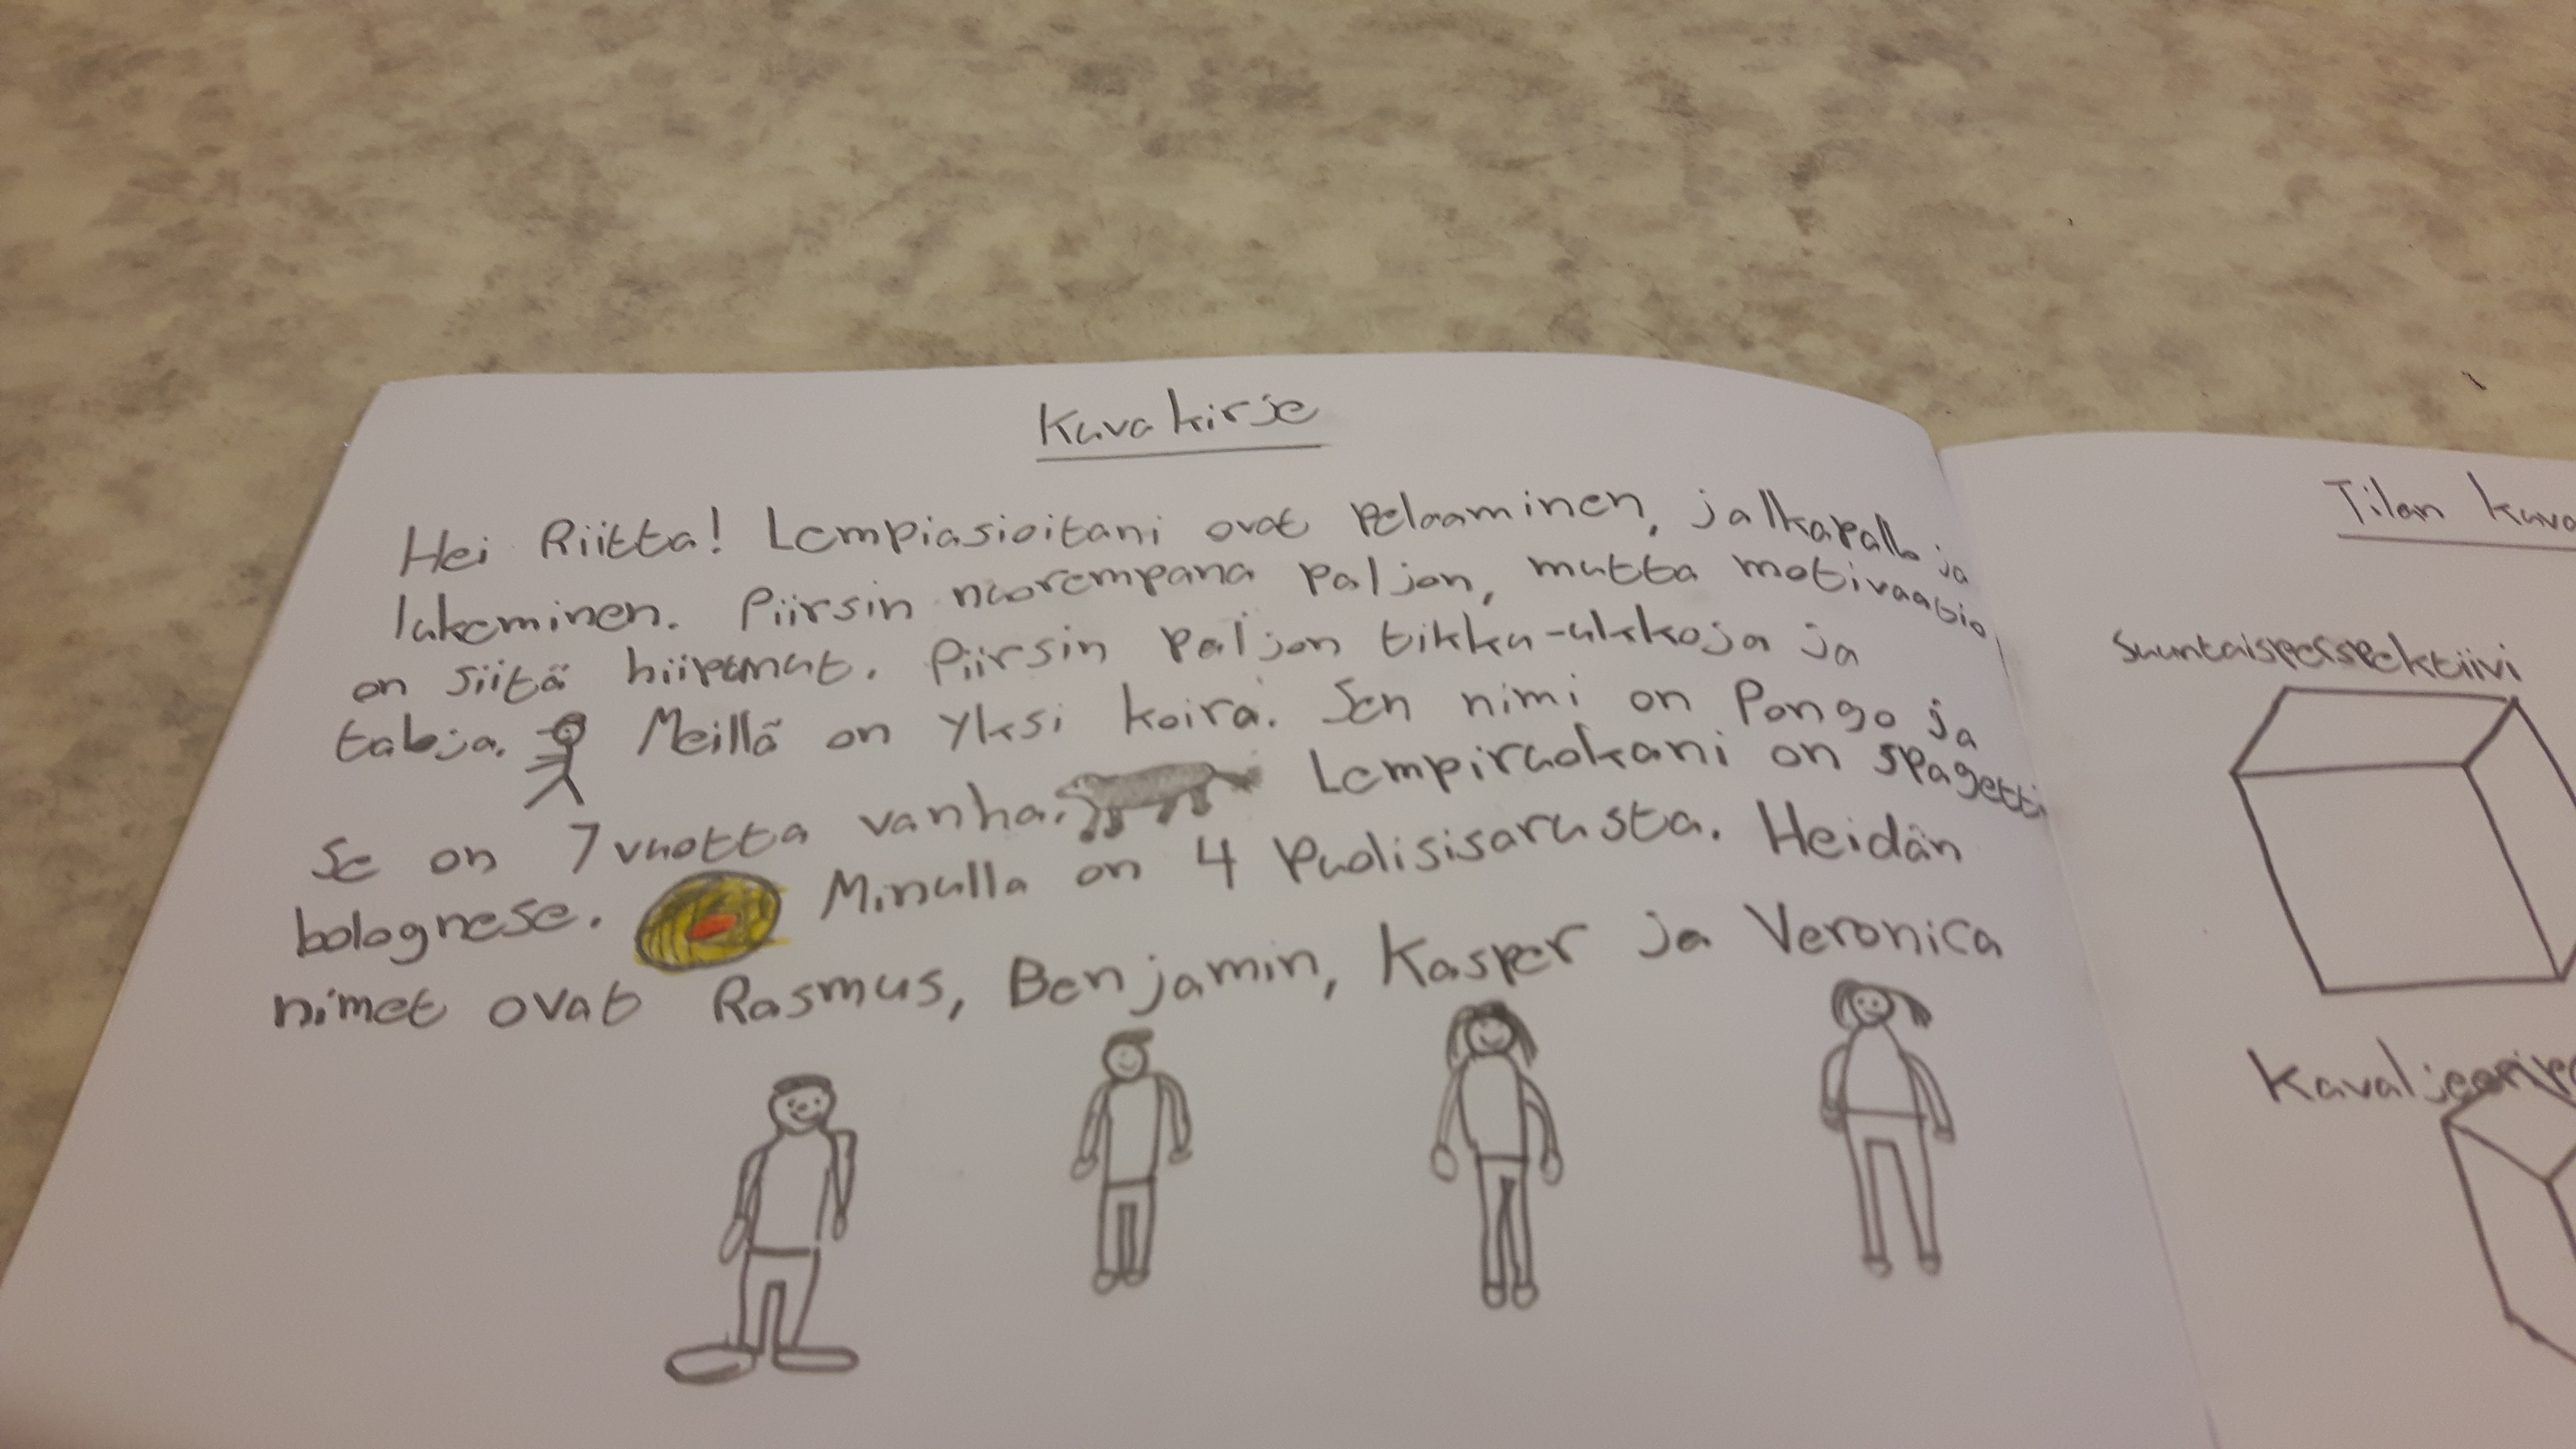 Kuvakirje
Hei Riitta! Lempiasioitani ovat pelaaminen, jalkapallo ja
lukeminen. Piirsin nuorempana paljon, mutta motivaatio
on siitä hiipunut. Piirsin paljon tikku-ukkoja ja
taloja. Meillä on yksi koira. Sen nimi on Pongo ja
Se on 7 vuotta vanha. Lempiruokani on spagetti
bolognese. Minulla on 4 Puolisisarusta. Heidän
nimet ovat Rasmus, Benjamin, Kasper ja Veronica
Tilan kuva
Suuntaisperspektiivi